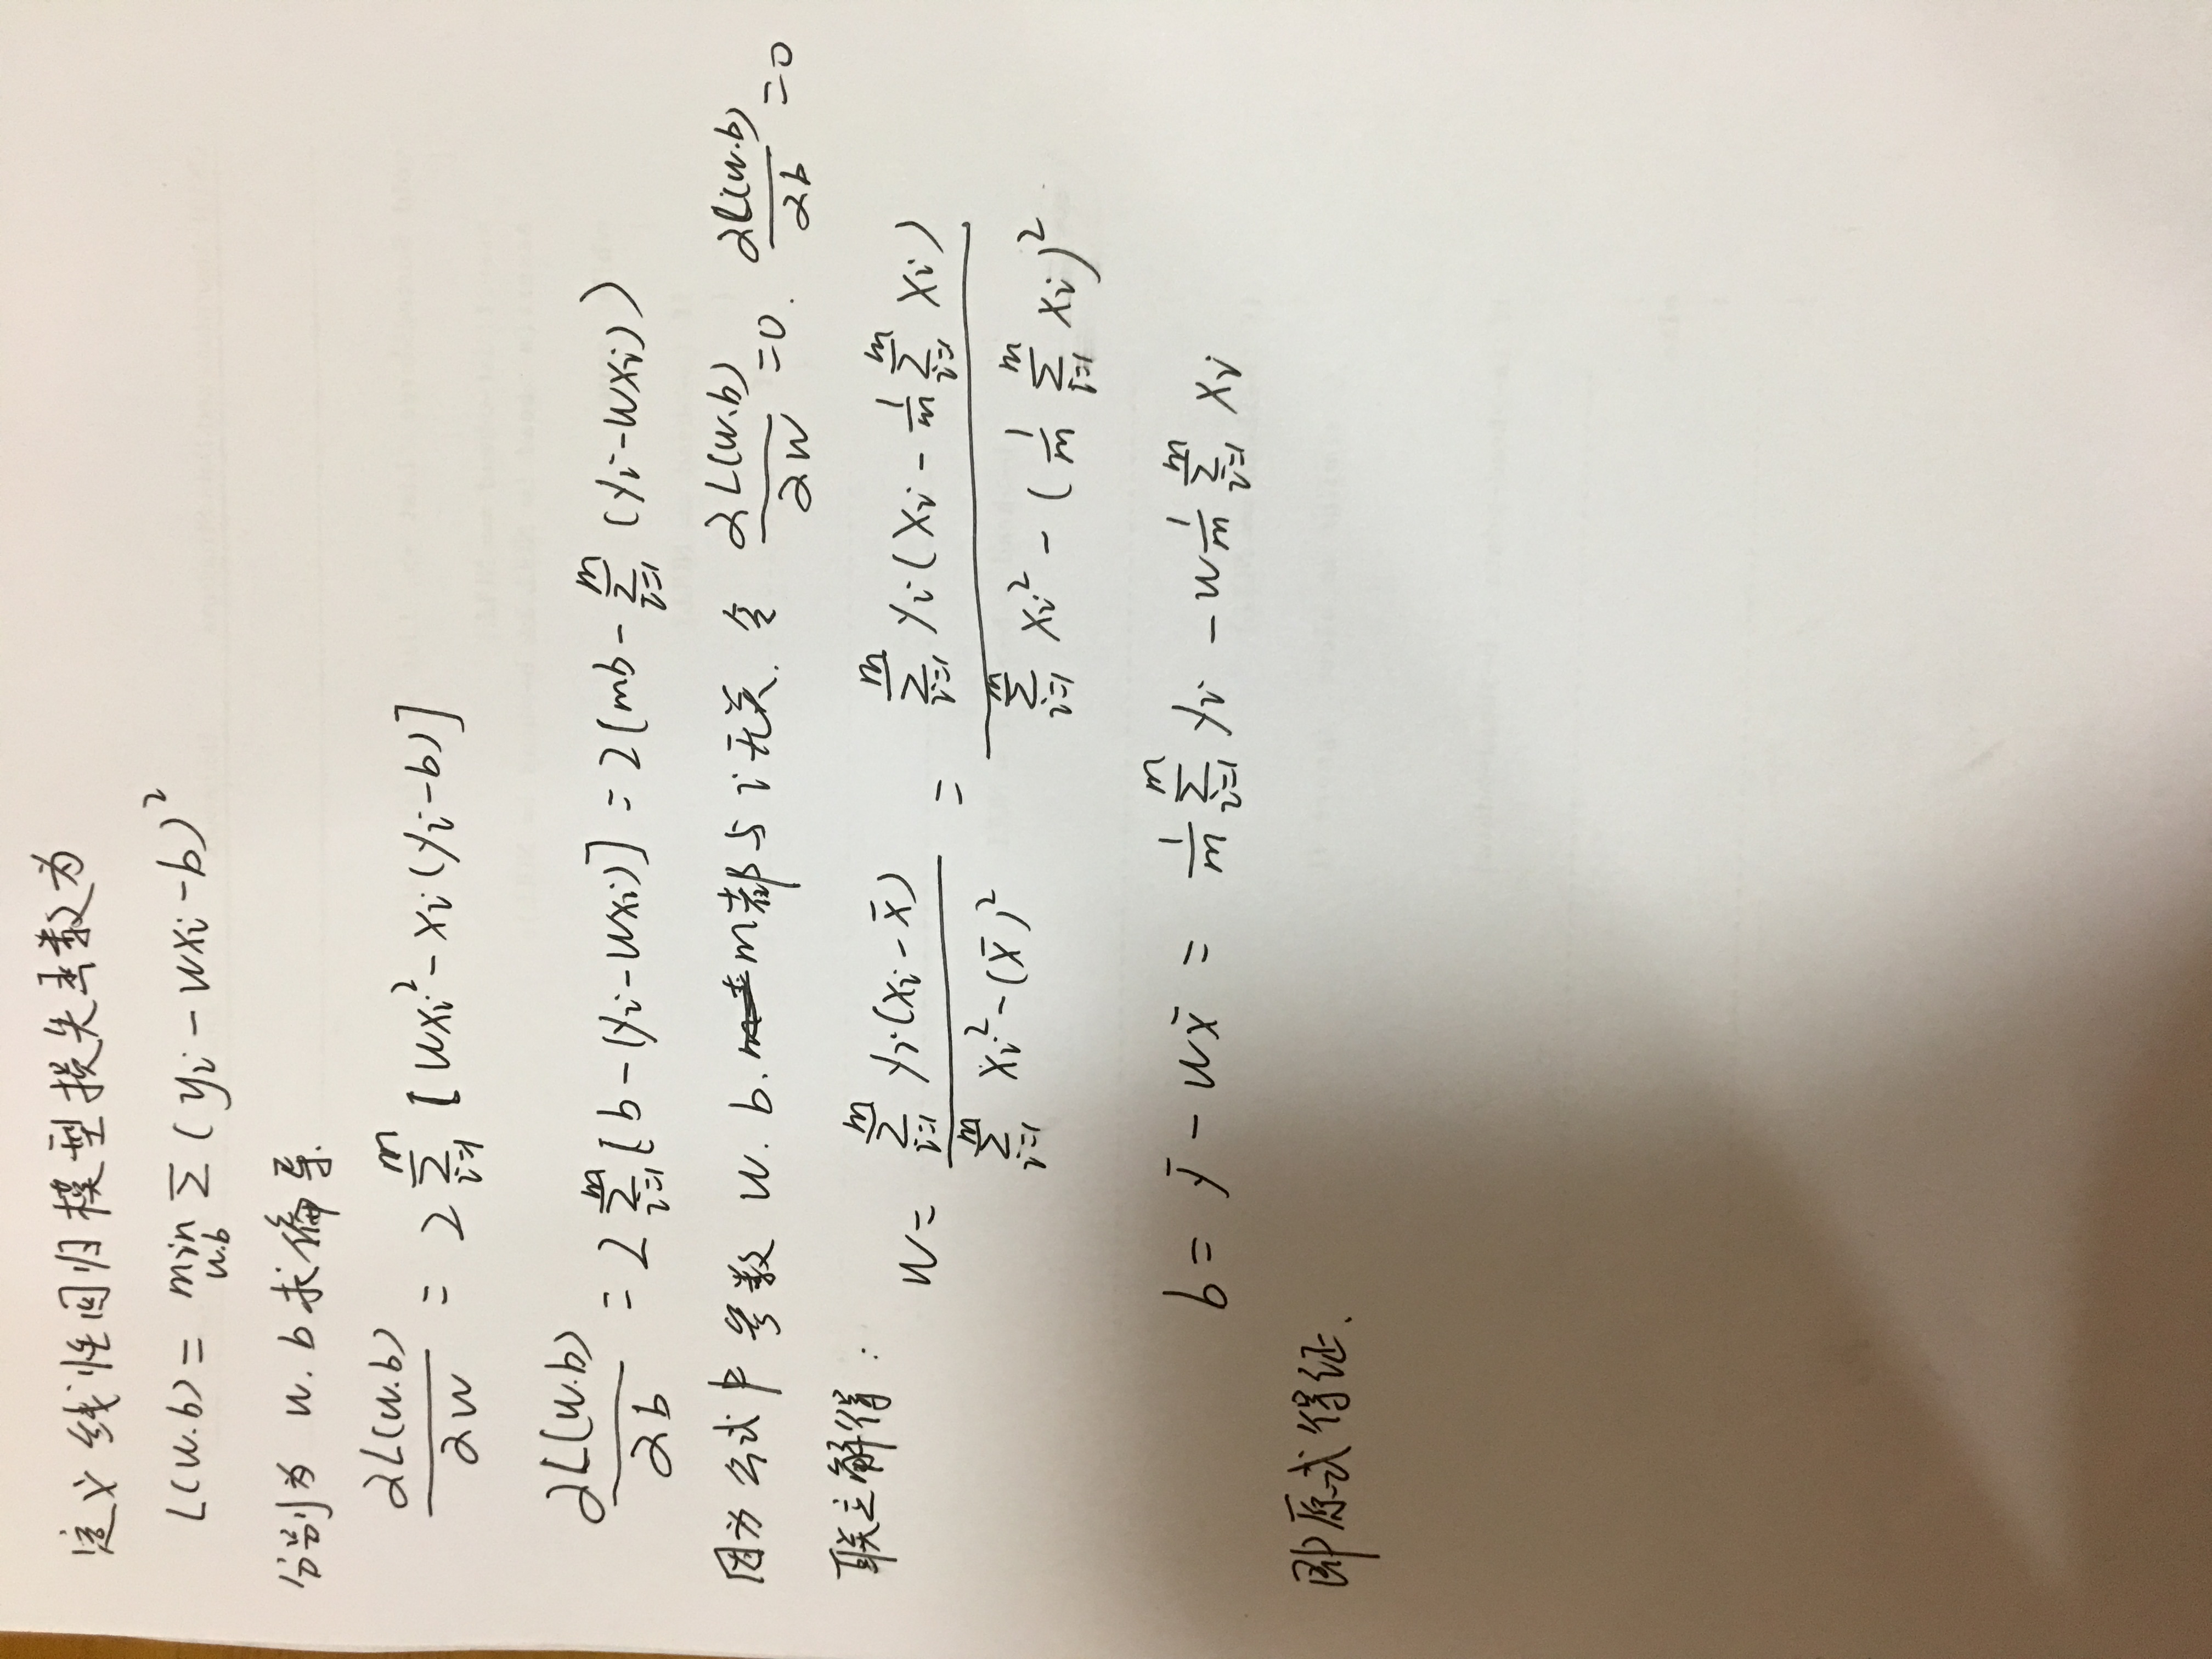 定义线性回归模型损失函数为
L(w.b) = min_{w.b} Σ (yi - wxi - b)²
分别为 w. b 求偏导.
∂L(w.b)/∂w = 2 Σ_{i=1}^{m} [wxi² - xi(yi-b)]
∂L(w.b)/∂b = 2 Σ_{i=1}^{m} [b-(yi-wxi)] = 2(mb - Σ_{i=1}^{m} (yi-wxi))
因为公式中参数 w. b. m都与i无关. 令 ∂L(w.b)/∂w =0. ∂L(w.b)/∂b =0
联立解得:
w = Σ_{i=1}^{m} yi(xi-x̄) / Σ_{i=1}^{m} xi²-(x̄)² = Σ_{i=1}^{m} yi(xi - 1/m Σ_{i=1}^{m} xi) / Σ_{i=1}^{m} xi² - (1/m Σ_{i=1}^{m} xi)²
b = ȳ - wx̄ = 1/m Σ_{i=1}^{m} yi - w 1/m Σ_{i=1}^{m} xi
即原式得证.